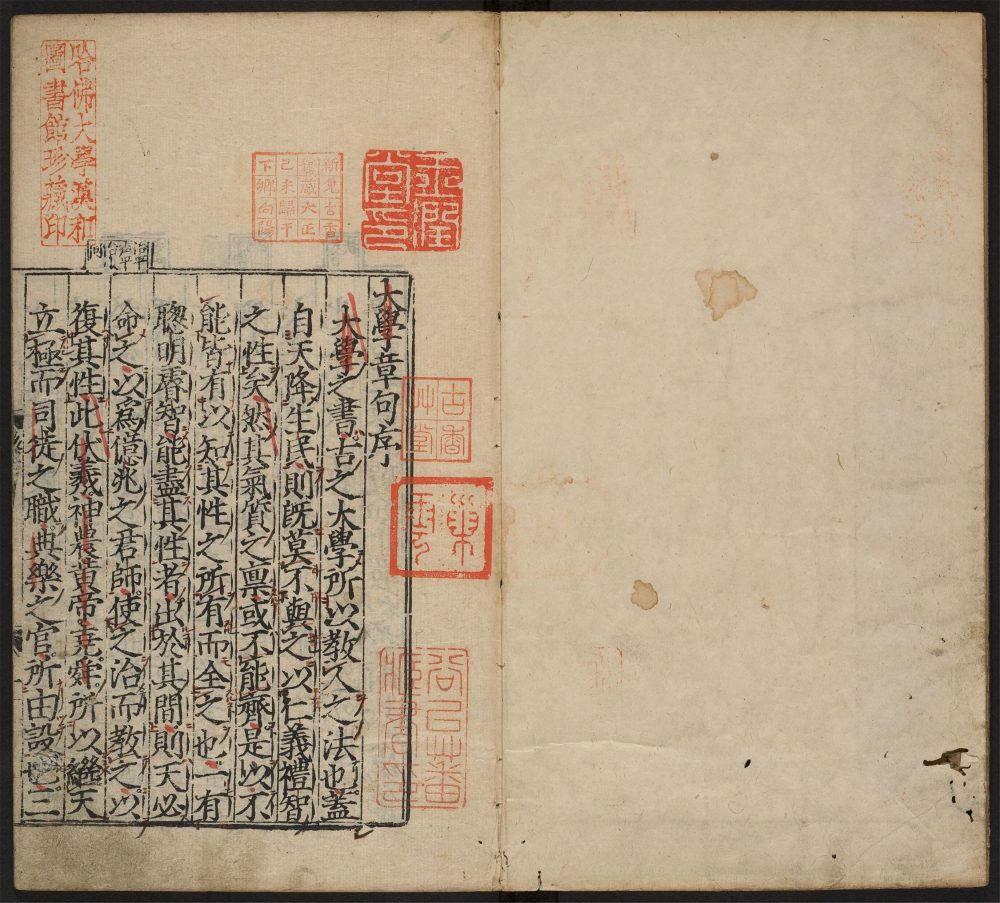 大學章句序
大學之書古之大學所以教人之法也蓋
自天降生民則既莫不與之以仁義禮智
之性矣然其氣質之禀或不能齊是以不
能皆有以知其性之所有而全之也一有
聰明睿智能盡其性者出於其間則天必
命之以爲億兆之君師使之治而教之以
復其性此伏羲神農黃帝堯舜所以繼天
立極而司徒之職典樂之官所由設也三
哈佛大學漢和
圖書館珍藏印